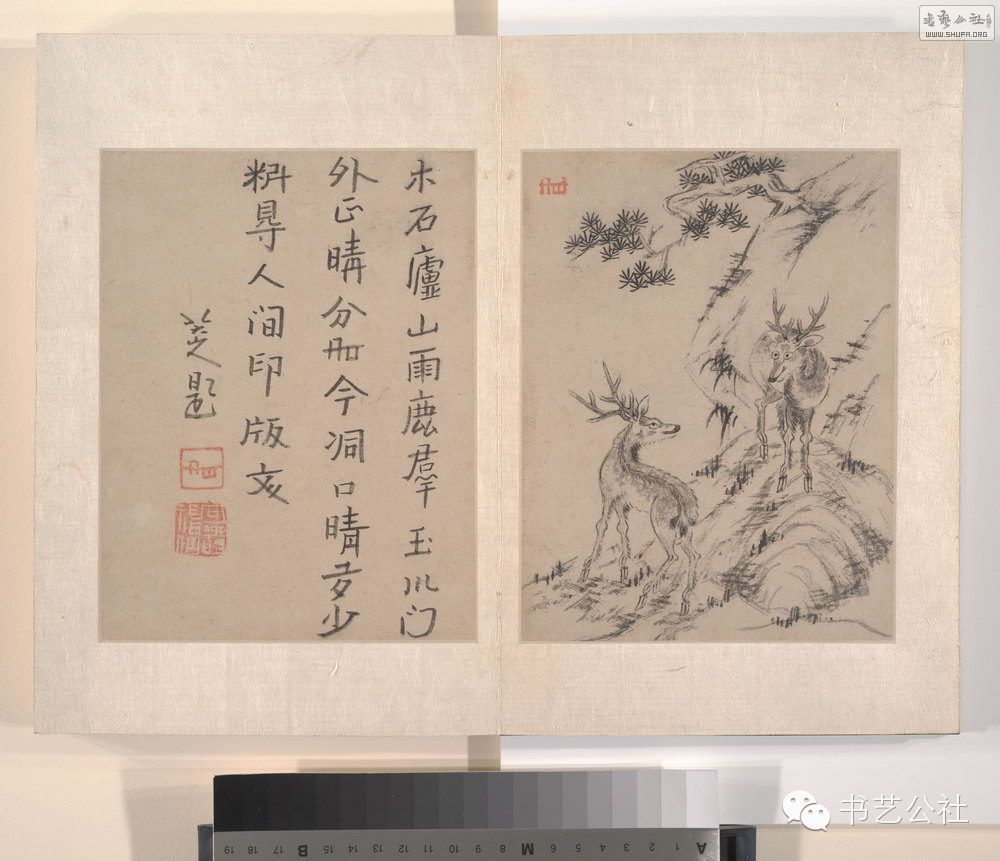 木石廬山兩鹿群玉川门
外正晴分今洞口晴多少
料尋人间印版文
八大題
书艺公社
WWW.SHUFA.ORG
A 1 2 3 4 5 6 M 8 9 10 11 12 13 14 15 B 17 18 19
书艺公社